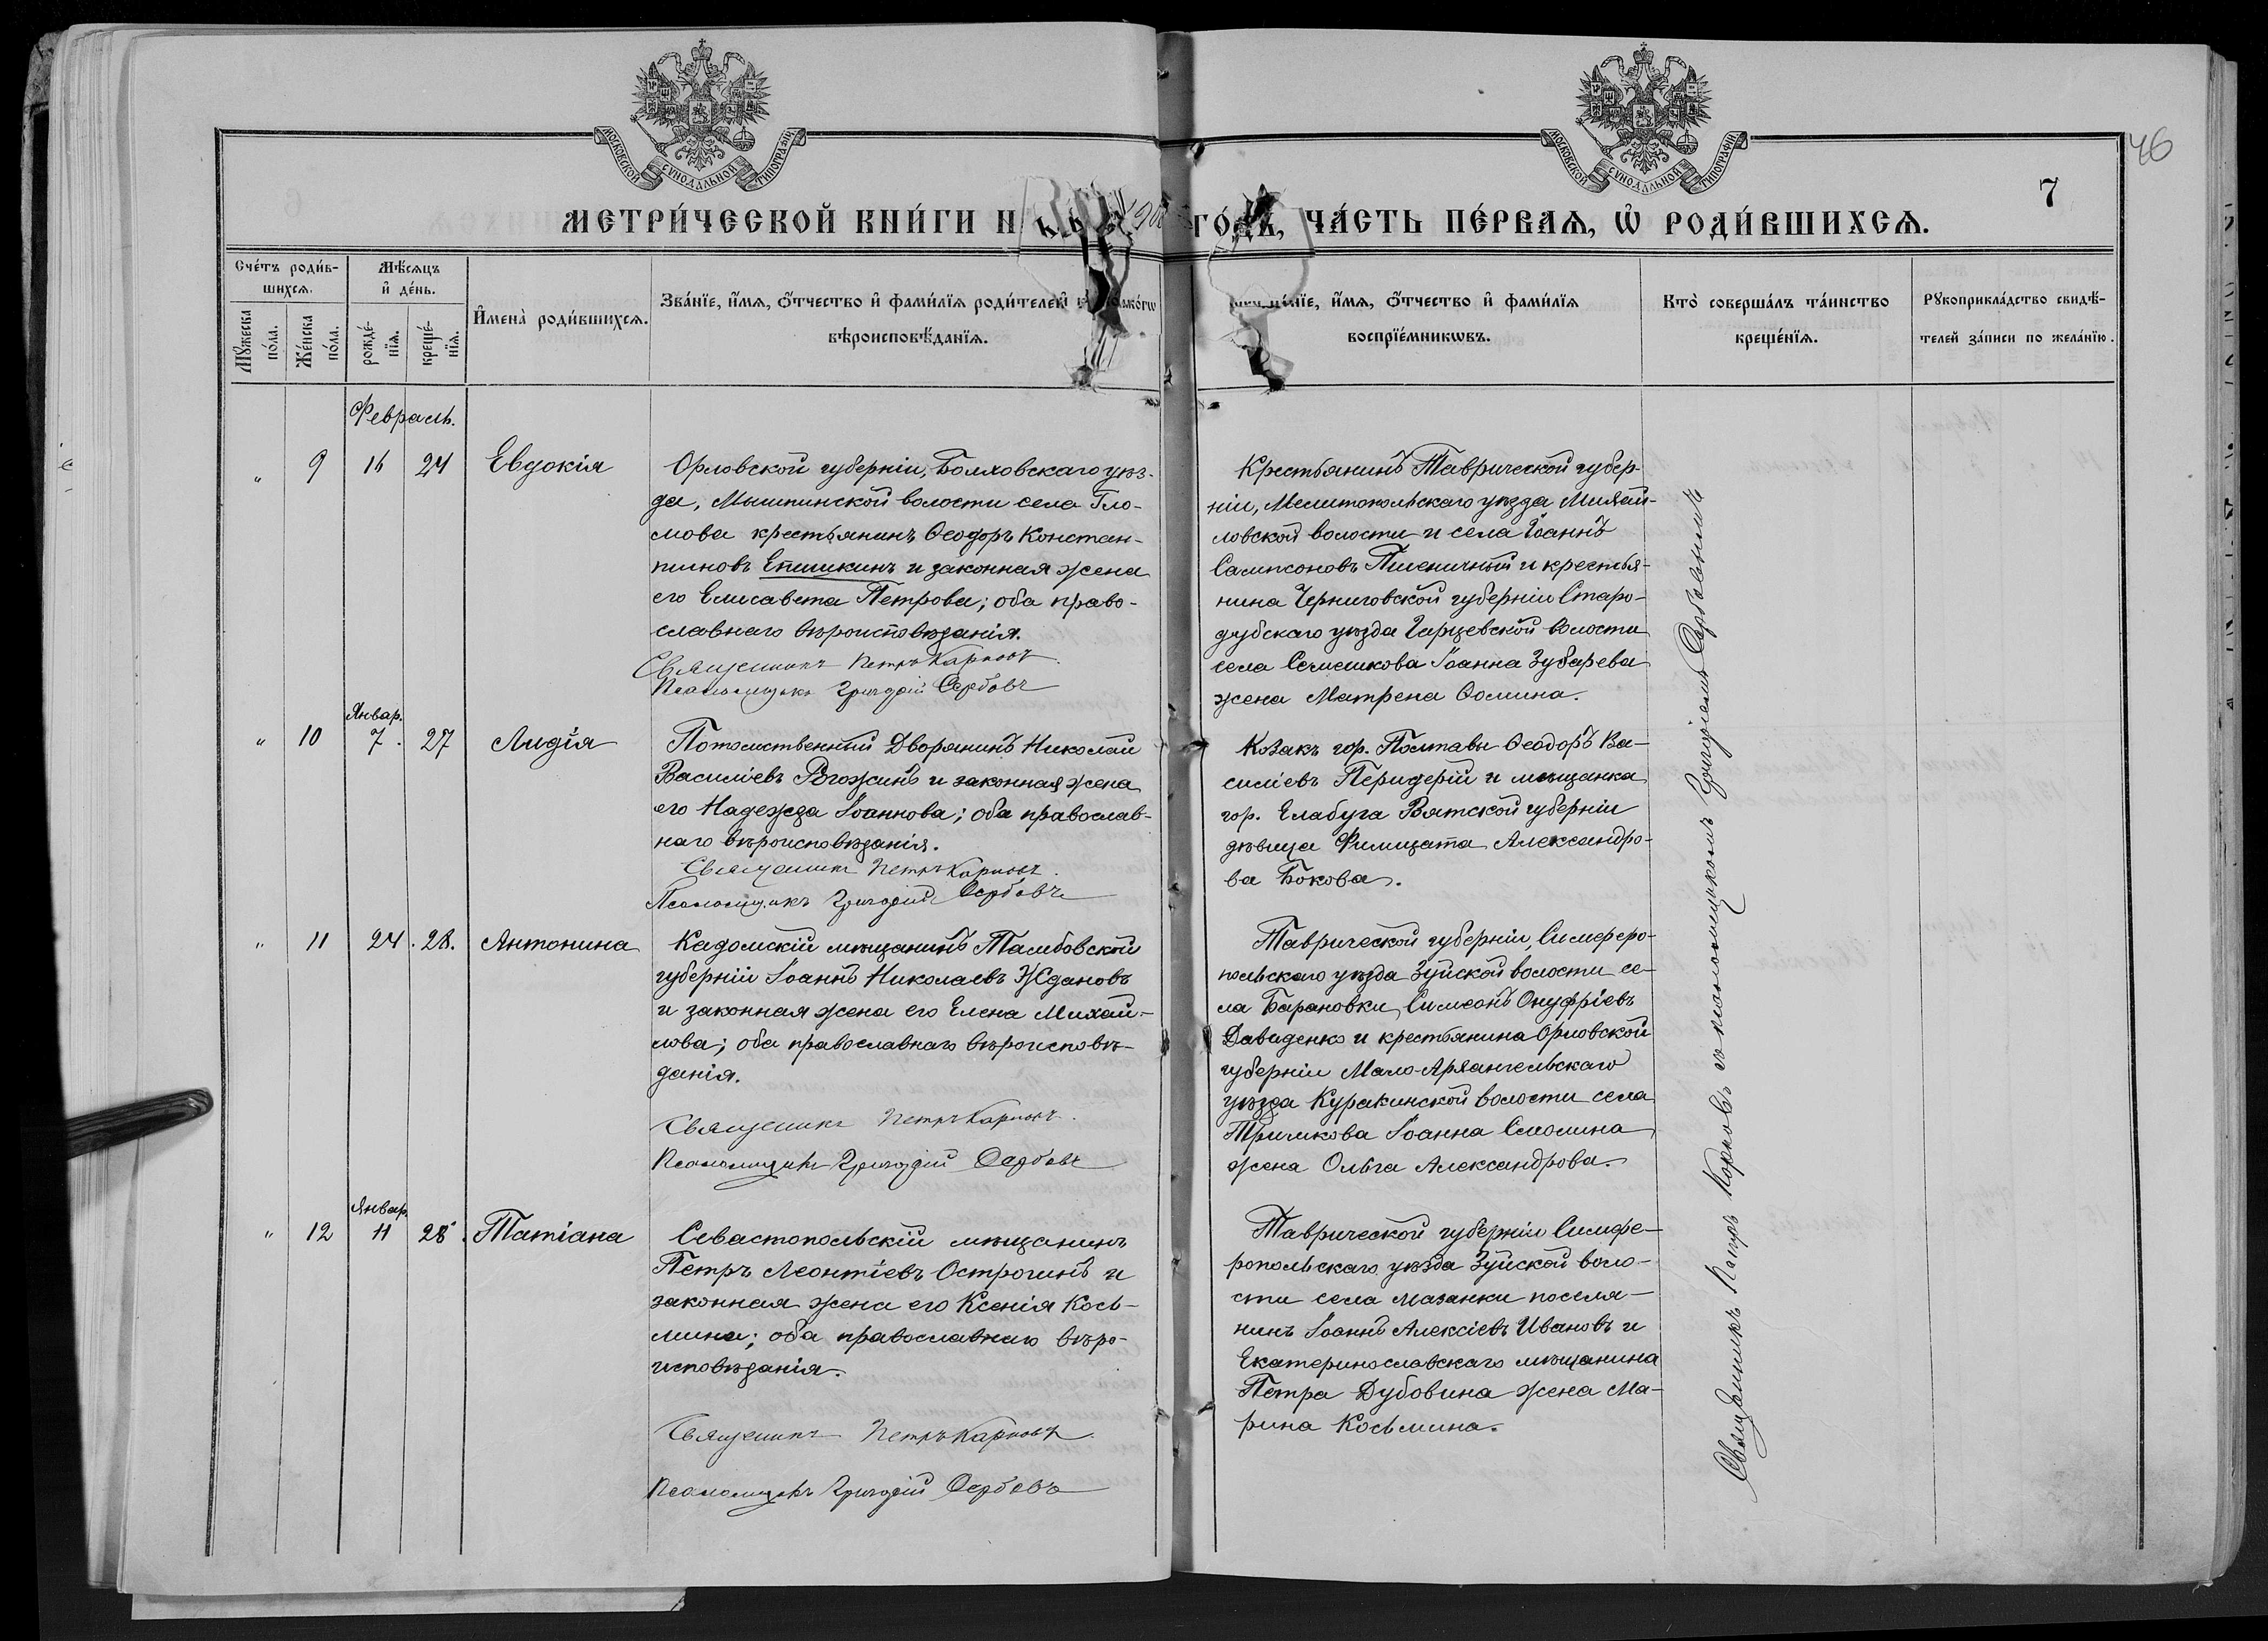 МОСКОВСКОЙ СѴНОДАЛЬНОЙ ТИПОГРАФІИ
МОСКОВСКОЙ СѴНОДАЛЬНОЙ ТИПОГРАФІИ
46
7
МЕТРИ́ЧЕСКОЙ КНИ́ГИ Н
ГО́ДЪ, ЧА́СТЬ ПЕ́РВАѦ, Ѡ РОДИ́ВШИХСѦ.
Сче́тъ роди́в-
шихсѧ.
Мѣ́сѧцъ
и҆ де́нь.
Мꙋ́жеска
по́ла.
Же́нска
по́ла.
рожде́-
нїѧ.
креще́-
нїѧ.
И҆мена̀ роди́вшихсѧ.
Зва́нїе, и҆́мѧ, ѻ҆́тчество и҆ фами́лїѧ роди́телей
вѣроисповѣ́данїѧ.
и҆́мѧ, ѻ҆́тчество и҆ фами́лїѧ
воспрїе́мникѡвъ.
Кто̀ соверша́лъ та́инство
креще́нїѧ.
Рꙋкоприкла́дство свидѣ́-
телей за́писи по жела́нїю.
Февраль.
" 9 16 24 Евдокія
Орловской губерніи, Болховскаго уѣз-
да, Мышпинской волости села Гло-
мова крестьянинъ Ѳеодоръ Констан-
тиновъ Епишкинъ и законная жена
его Елисавета Петрова; оба право-
славнаго вѣроисповѣданія.
Священникъ Петръ Карповъ.
Псаломщикъ Григорій Сербовъ
Крестьянинъ Таврической губер-
ніи, Мелитопольскаго уѣзда Михай-
ловской волости и села Іоаннъ
Сампсоновъ Пшеничный и крестья-
нина Черниговской губерніи Старо-
дубскаго уѣзда Гарцевской волости
села Семешкова Іоанна Зубарева
жена Матрена Ѳомина.
Январ.
" 10 7. 27 Лидія
Потомственный Дворянинъ Николай
Василіевъ Рогожинъ и законная жена
его Надежда Іоаннова; оба православ-
наго вѣроисповѣданія.
Священникъ Петръ Карповъ.
Псаломщикъ Григорій Сербовъ
Козакъ гор. Полтавы Ѳеодоръ Ва-
силіевъ Перидерій и мѣщанка
гор. Елабуга Вятской губерніи
дѣвица Филицата Александро-
ва Бокова.
" 11 24. 28. Антонина
Кадомскій мѣщанинъ Тамбовской
губерніи Іоаннъ Николаевъ Ждановъ
и законная жена его Елена Михай-
лова; оба православнаго вѣроисповѣ-
данія.
Священникъ Петръ Карповъ.
Псаломщикъ Григорій Сербовъ
Таврической губерніи, Симферо-
польскаго уѣзда Зуйской волости се-
ла Барановки, Симеонъ Онуфріевъ
Давиденко и крестьянина Орловской
губерніи Мало-Архангельскаго
уѣзда Куракинской волости села
Тришкова Іоанна Смолина
жена Ольга Александрова.
Январ.
" 12 11 28. Татіана
Севастопольскій мѣщанинъ
Петръ Леонтіевъ Острогинъ и
законная жена его Ксенія Кось-
мина; оба православнаго вѣро-
исповѣданія.
Священникъ Петръ Карповъ.
Псаломщикъ Григорій Сербовъ
Таврической губерніи Симфе-
ропольскаго уѣзда Зуйской воло-
сти села Мазанки поселя-
нинъ Іоаннъ Алексіевъ Ивановъ и
Екатеринославскаго мѣщанина
Петра Дубовина жена Ма-
рина Косьмина.
Священникъ Петръ Карповъ съ псаломщикомъ Григоріемъ Сербовымъ